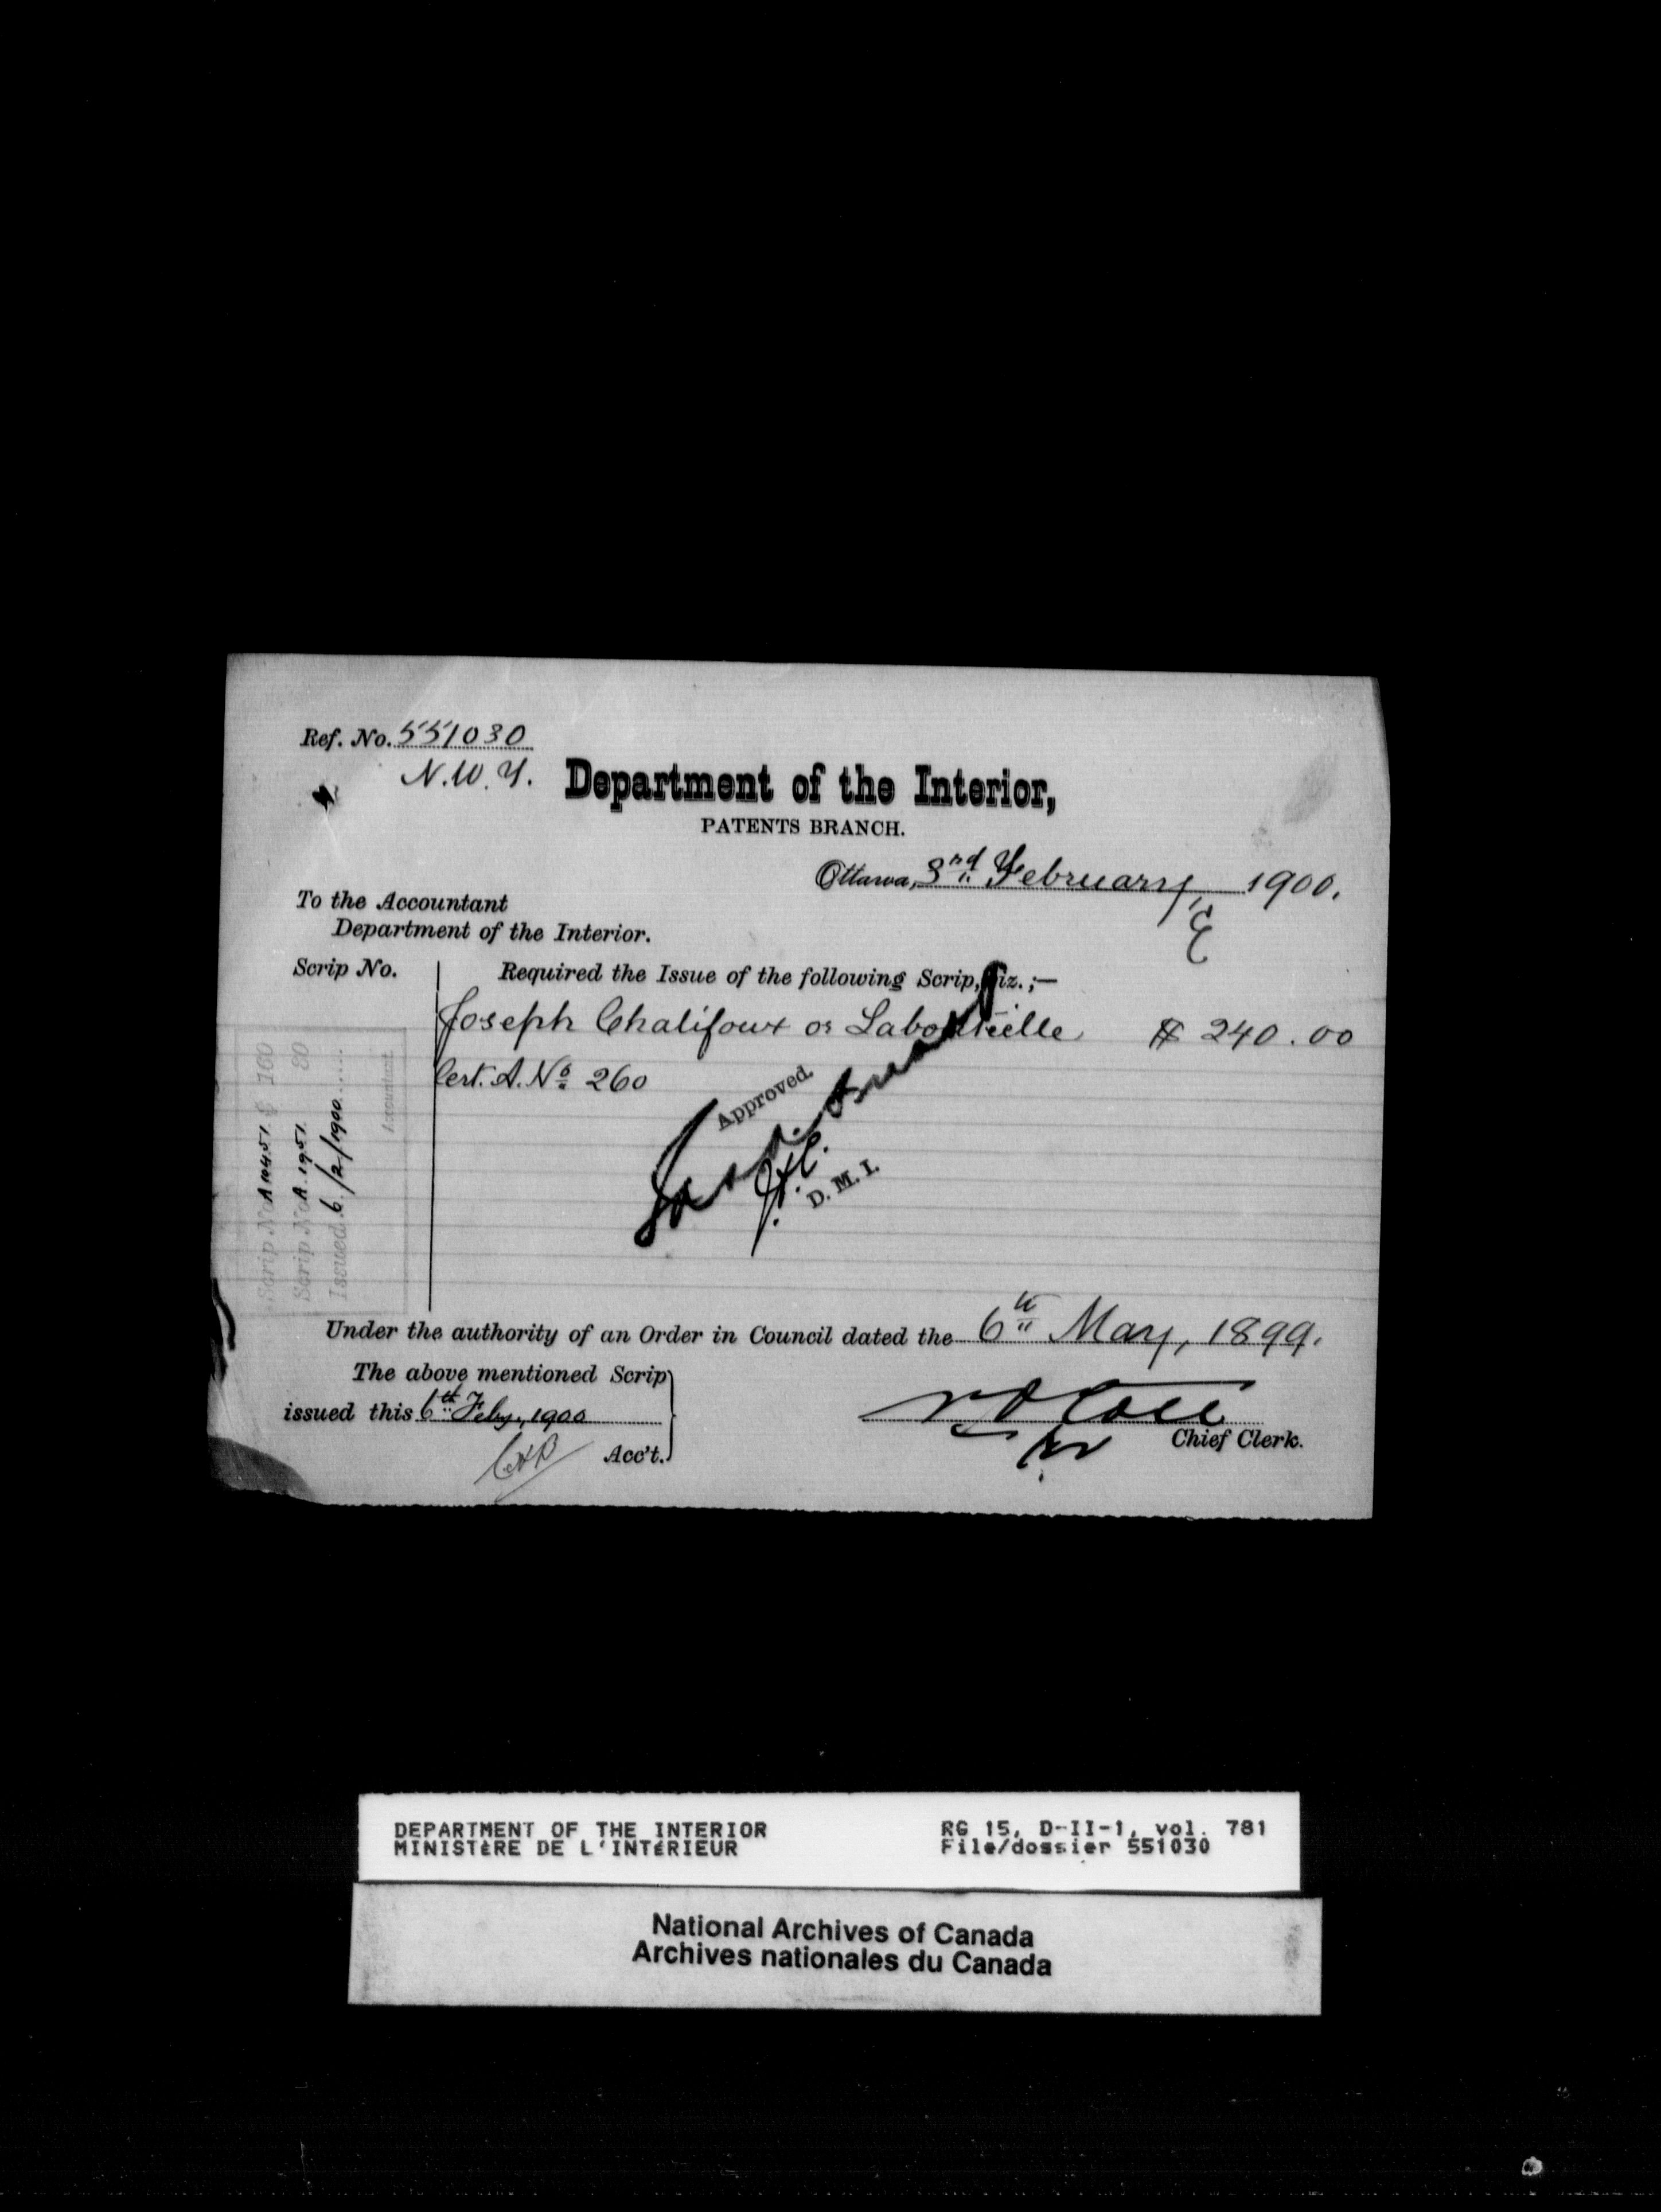 Ref. No. 551030
N.W.T.
Department of the Interior,
PATENTS BRANCH.
Ottawa, 3rd February, 1900.
To the Accountant
Department of the Interior.
Scrip No.
Required the Issue of the following Scrip, viz.;—
Joseph Chalifoux or Labouteille $ 240.00
Cert. A. No 260
Approved.
D. M. I.
Scrip No. A 10451 $ 160
Scrip No. A. 1951 80
Issued 6/2/1900
Accountant.
Under the authority of an Order in Council dated the 6th May, 1899.
The above mentioned Scrip
issued this 6th Feby, 1900
Acc't.
Chief Clerk.
DEPARTMENT OF THE INTERIOR
MINISTÈRE DE L'INTÉRIEUR
RG 15, D-II-1, vol. 781
File/dossier 551030
National Archives of Canada
Archives nationales du Canada